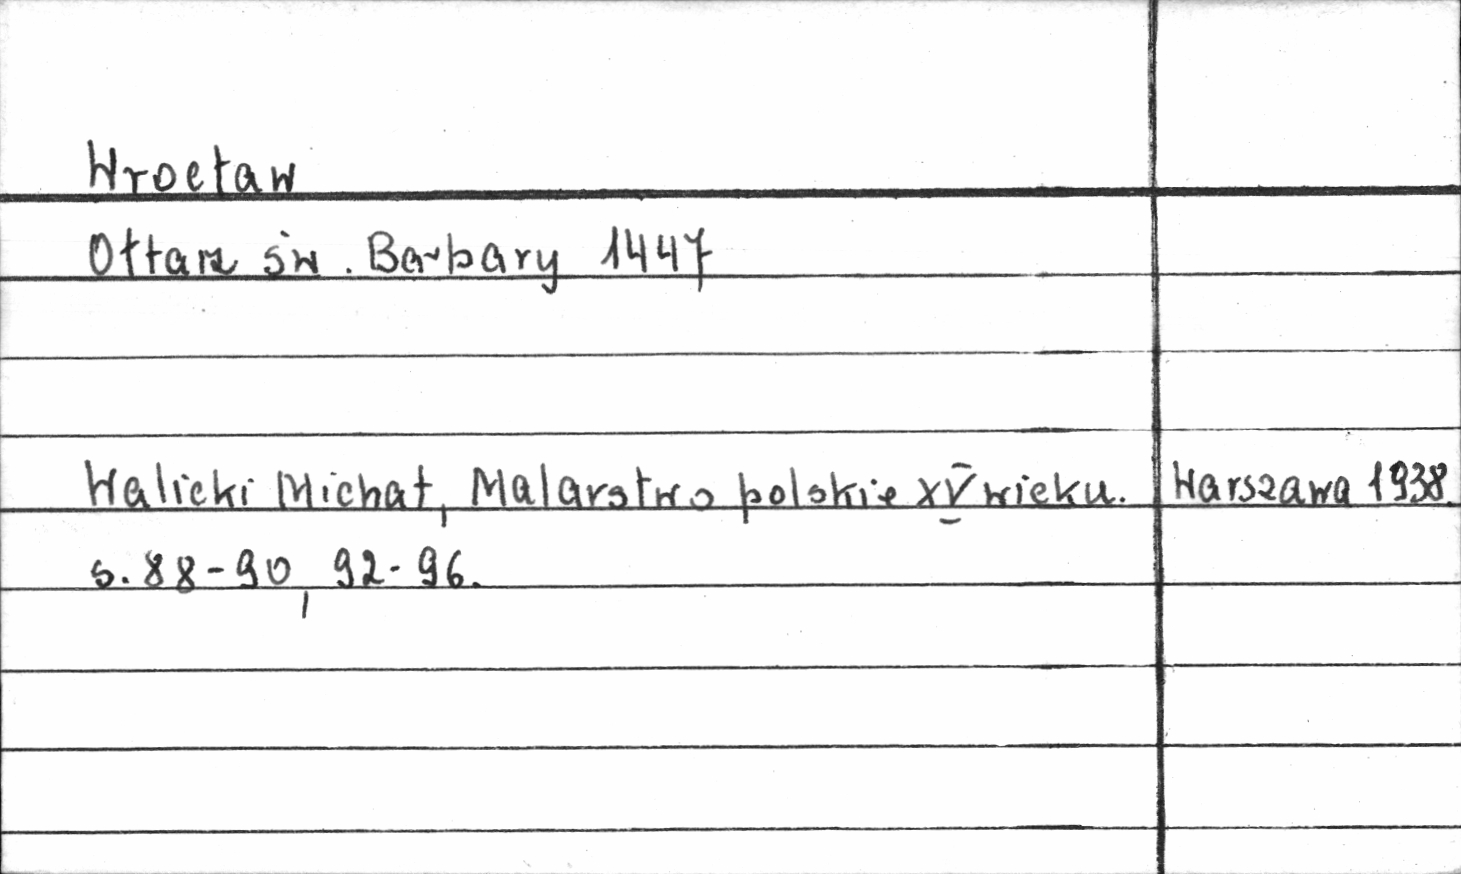 Wrocław
Ołtarz św. Barbary 1447
Walicki Michał, Malarstwo polskie XV wieku. Warszawa 1938.
s. 88-90, 92-96.